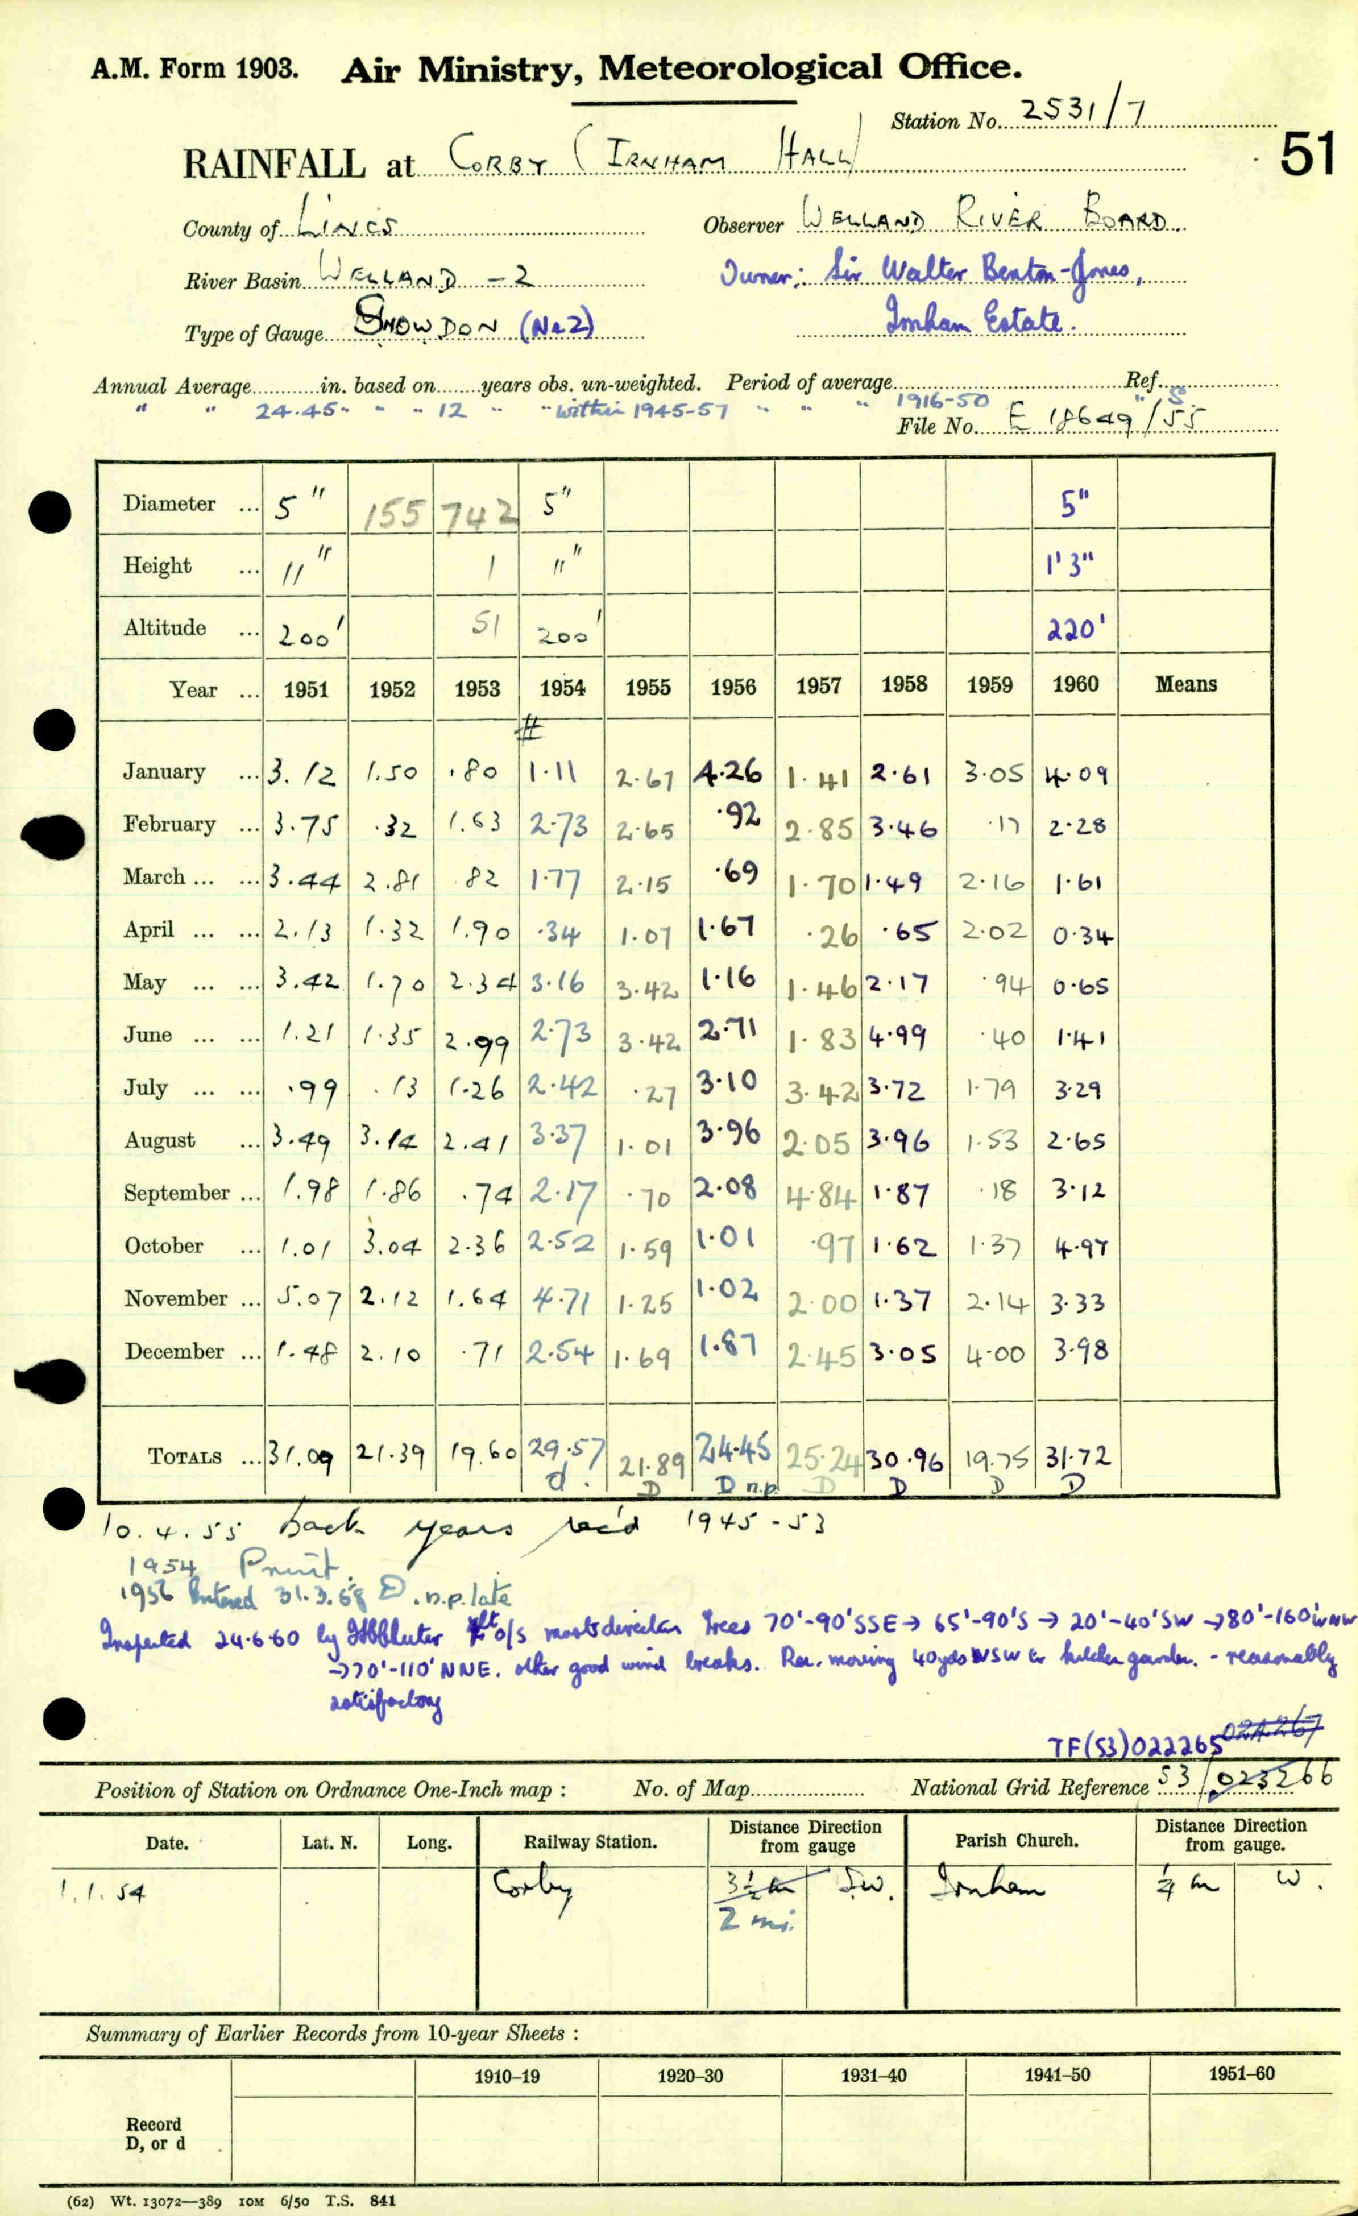 A.M. Form 1903. Air Ministry, Meteorological Office.
Station No. 2531/7
51
RAINFALL at CORBY (IRNHAM HALL)
County of LINCS Observer WELLAND RIVER BOARD.
River Basin WELLAND - 2 Owner: Sir Walter Benton-Jones,
Type of Gauge SNOWDON (No 2) Irnham Estate.
Annual Average in. based on years obs. un-weighted. Period of average Ref.
" " 24.45 " " " 12 " " within 1945-57 " " " 1916-50 " S.
File No. E 18649/55
Diameter ... 5" 155 742 5" 5"
Height ... 11" 1 11" 1'3"
Altitude ... 200' 51 200' 220'
Year ... 1951 1952 1953 1954 1955 1956 1957 1958 1959 1960 Means
#
January ... 3.12 1.50 .80 1.11 2.67 4.26 1.41 2.61 3.05 4.09
February ... 3.75 .32 1.63 2.73 2.65 .92 2.85 3.46 .17 2.28
March ... ... 3.44 2.81 .82 1.77 2.15 .69 1.70 1.49 2.16 1.61
April ... ... 2.13 1.32 1.90 .34 1.07 1.67 .26 .65 2.02 0.34
May ... ... 3.42 1.70 2.34 3.16 3.42 1.16 1.46 2.17 .94 0.65
June ... ... 1.21 1.35 2.99 2.73 3.42 2.71 1.83 4.99 .40 1.41
July ... ... .99 .13 1.26 2.42 .27 3.10 3.42 3.72 1.79 3.29
August ... 3.49 3.14 2.41 3.37 1.01 3.96 2.05 3.96 1.53 2.65
September ... 1.98 1.86 .74 2.17 .70 2.08 4.84 1.87 .18 3.12
October ... 1.01 3.04 2.36 2.52 1.59 1.01 .97 1.62 1.37 4.97
November ... 5.07 2.12 1.64 4.71 1.25 1.02 2.00 1.37 2.14 3.33
December ... 1.48 2.10 .71 2.54 1.69 1.87 2.45 3.05 4.00 3.98
TOTALS ... 31.09 21.39 19.60 29.57 21.89 24.45 25.24 30.96 19.75 31.72
d. D D n.p. D D D D
10.4.55 back years rec'd 1945-53
1954 Permit.
1956 Entered 31.3.58 D. n.p. late
Inspected 24.6.60 by o/s most direction trees 70'-90' SSE → 65'-90' S → 20'-40' SW → 80'-160' WNW
→ 70'-110' NNE. other good wind breaks. Rec. moving 40yds WSW in kitchen garden. - reasonably
satisfactory
TF(53)022265 024267
Position of Station on Ordnance One-Inch map : No. of Map National Grid Reference 53/023266
Date. Lat. N. Long. Railway Station. Distance from Direction gauge Parish Church. Distance from Direction gauge.
1.1.54 Corby 3½ m S.W. Irnham ¼ m W.
2 mi.
Summary of Earlier Records from 10-year Sheets :
1910–19 1920–30 1931–40 1941–50 1951–60
Record
D, or d
(62) Wt. 13072—389 10M 6/50 T.S. 841